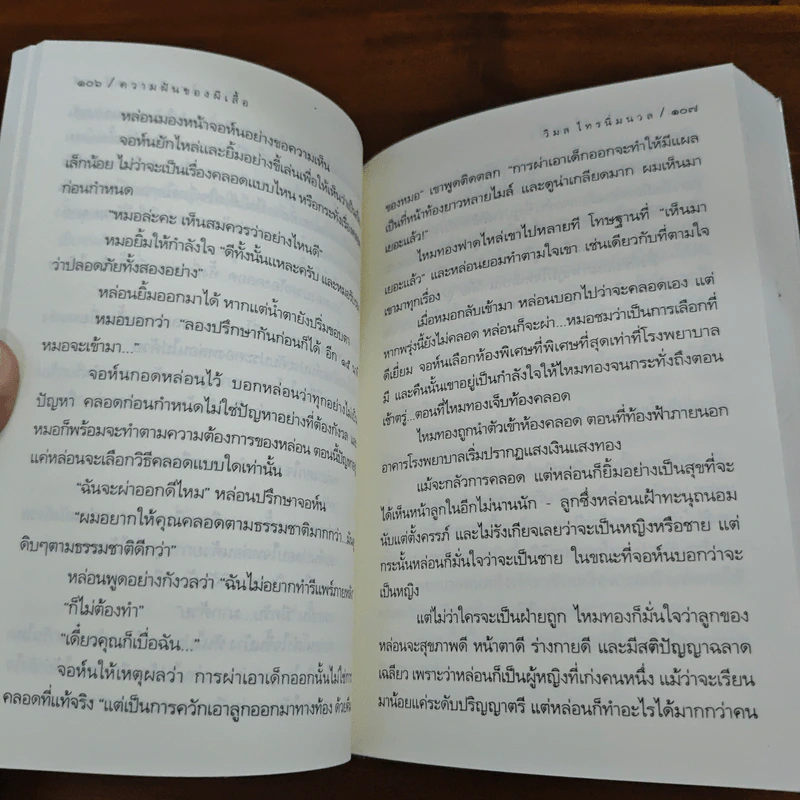 ๑๐๖ / ความฝันของผีเสื้อ
หล่อนมองหน้าจอห์นอย่างขอความเห็น
จอห์นยักไหล่และยิ้มอย่างขี้เล่นเพื่อให้เห็นว่าเป็น
เล็กน้อย ไม่ว่าจะเป็นเรื่องคลอดแบบไหน หรือกระทั่งเรื่อง
ก่อนกำหนด
"หมอล่ะคะ เห็นสมควรว่าอย่างไหนดี"
หมอยิ้มให้กำลังใจ "ดีทั้งนั้นแหละครับ และหมอ
ว่าปลอดภัยทั้งสองอย่าง"
หล่อนยิ้มออกมาได้ หากแต่น้ำตายังปริ่มขอบตา
หมอบอกว่า "ลองปรึกษากันก่อนก็ได้ อีก ๑๕
หมอจะเข้ามา..."
จอห์นกอดหล่อนไว้ บอกหล่อนว่าทุกอย่างไม่
ปัญหา คลอดก่อนกำหนดไม่ใช่ปัญหาอย่างที่ต้องกังวล
หมอก็พร้อมจะทำตามความต้องการของหล่อน ตอนนี้ปัญหา
แค่หล่อนจะเลือกวิธีคลอดแบบใดเท่านั้น
"ฉันจะผ่าออกดีไหม" หล่อนปรึกษาจอห์น
"ผมอยากให้คุณคลอดตามธรรมชาติมากกว่า...
ดิบๆตามธรรมชาติดีกว่า"
หล่อนพูดอย่างกังวลว่า "ฉันไม่อยากทำรีแพร์ภายหลัง
"ก็ไม่ต้องทำ"
"เดี๋ยวคุณก็เบื่อฉัน..."
จอห์นให้เหตุผลว่า การผ่าเอาเด็กออกนั้นไม่ใช่การ
คลอดที่แท้จริง "แต่เป็นการควักเอาลูกออกมาทางท้อง ด้วย
วิมล ไทรนิ่มนวล / ๑๐๗
ของหมอ" เขาพูดติดตลก "การผ่าเอาเด็กออกจะทำให้มีแผล
เป็นที่หน้าท้องยาวหลายไมล์ และดูน่าเกลียดมาก ผมเห็นมา
เยอะแล้ว!"
ไหมทองฟาดไหล่เขาไปหลายที โทษฐานที่ "เห็นมา
เยอะแล้ว" และหล่อนยอมทำตามใจเขา เช่นเดียวกับที่ตามใจ
เขามาทุกเรื่อง
เมื่อหมอกลับเข้ามา หล่อนบอกไปว่าจะคลอดเอง แต่
หากพรุ่งนี้ยังไม่คลอด หล่อนก็จะผ่า...หมอชมว่าเป็นการเลือกที่
ดีเยี่ยม จอห์นเลือกห้องพิเศษที่พิเศษที่สุดเท่าที่โรงพยาบาล
มี และคืนนั้นเขาอยู่เป็นกำลังใจให้ไหมทองจนกระทั่งถึงตอน
เช้าตรู่...ตอนที่ไหมทองเจ็บท้องคลอด
ไหมทองถูกนำตัวเข้าห้องคลอด ตอนที่ท้องฟ้าภายนอก
อาคารโรงพยาบาลเริ่มปรากฏแสงเงินแสงทอง
แม้จะกลัวการคลอด แต่หล่อนก็ยิ้มอย่างเป็นสุขที่จะ
ได้เห็นหน้าลูกในอีกไม่นานนัก - ลูกซึ่งหล่อนเฝ้าทะนุถนอม
นับแต่ตั้งครรภ์ และไม่รังเกียจเลยว่าจะเป็นหญิงหรือชาย แต่
กระนั้นหล่อนก็มั่นใจว่าจะเป็นชาย ในขณะที่จอห์นบอกว่าจะ
เป็นหญิง
แต่ไม่ว่าใครจะเป็นฝ่ายถูก ไหมทองก็มั่นใจว่าลูกของ
หล่อนจะสุขภาพดี หน้าตาดี ร่างกายดี และมีสติปัญญาฉลาด
เฉลียว เพราะว่าหล่อนก็เป็นผู้หญิงที่เก่งคนหนึ่ง แม้ว่าจะเรียน
มาน้อยแค่ระดับปริญญาตรี แต่หล่อนก็ทำอะไรได้มากกว่าคน